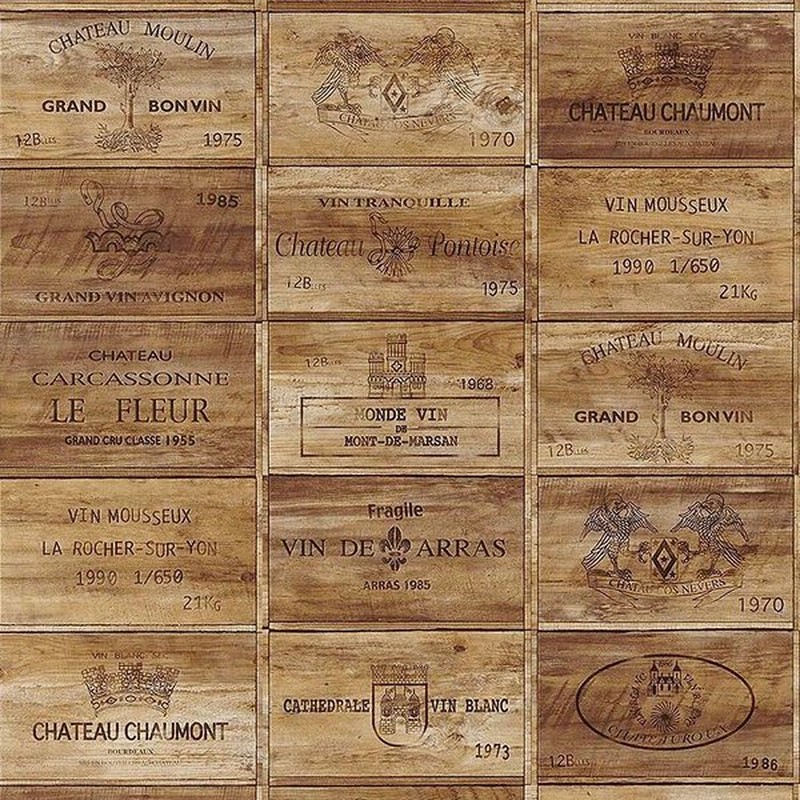 CHATEAU MOULIN
GRAND BONVIN
12BLLES 1975
CHATEAU OS NEVERS
1970
VIN BLANC SEC
CHATEAU CHAUMONT
BOURDEAUX
12BLLES 1985
GRAND VIN AVIGNON
VIN TRANQUILLE
Chateau Pontoise
12BLLES 1975
VIN MOUSSEUX
LA ROCHER-SUR-YON
1990 1/650
21KG
CHATEAU
CARCASSONNE
LE FLEUR
GRAND CRU CLASSE 1955
12BLLES 1968
MONDE VIN
DE
MONT-DE-MARSAN
CHATEAU MOULIN
GRAND BONVIN
12BLLES 1975
VIN MOUSSEUX
LA ROCHER-SUR-YON
1990 1/650
21KG
Fragile
VIN DE ARRAS
ARRAS 1985
CHATEAU OS NEVERS
1970
VIN BLANC SEC
CHATEAU CHAUMONT
BOURDEAUX
CATHEDRALE VIN BLANC
1973
12BLLES 1986